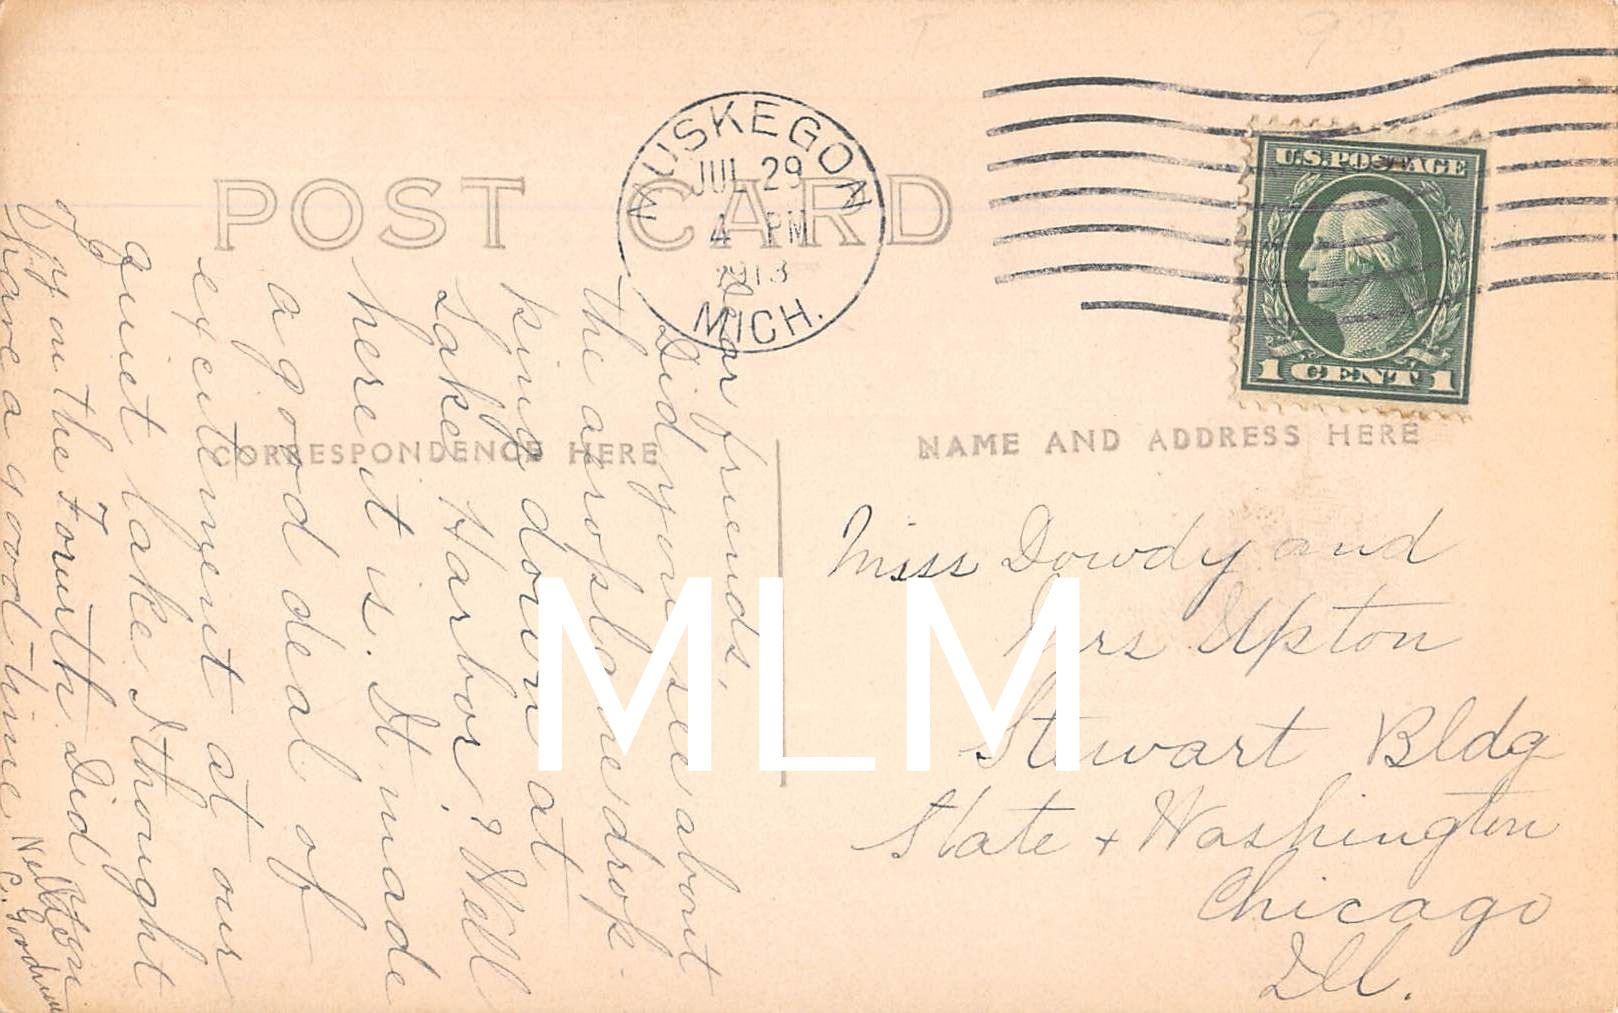 POST CARD
MUSKEGON
JUL 29
4 PM
1913
MICH.
U.S. POSTAGE
1 CENT 1
CORRESPONDENCE HERE
NAME AND ADDRESS HERE
Dear friends,
Did you see about
the aroplane drop-
ping down at
Lake Harbor? Well
here it is. It made
a good deal of
excitement at our
quiet lake. I thought
of you the Fourth. Did
you have a good time
Nell
C. Gordon
Miss Dowdy and
Mrs Upton
Stewart Bldg
State + Washington
Chicago
Ill.
MLM